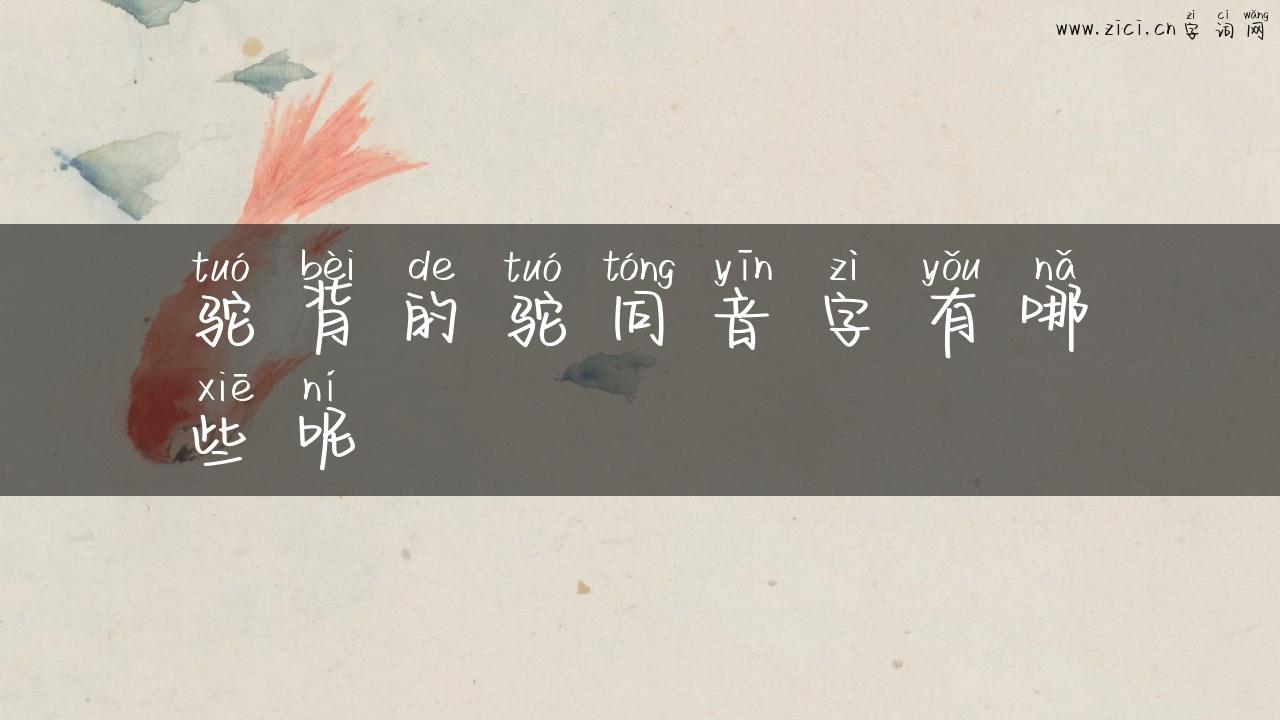 zì cí wǎng
www.zici.cn 字词网
tuó bèi de tuó tóng yīn zì yǒu nǎ
驼背的驼同音字有哪
xiē ní
些呢